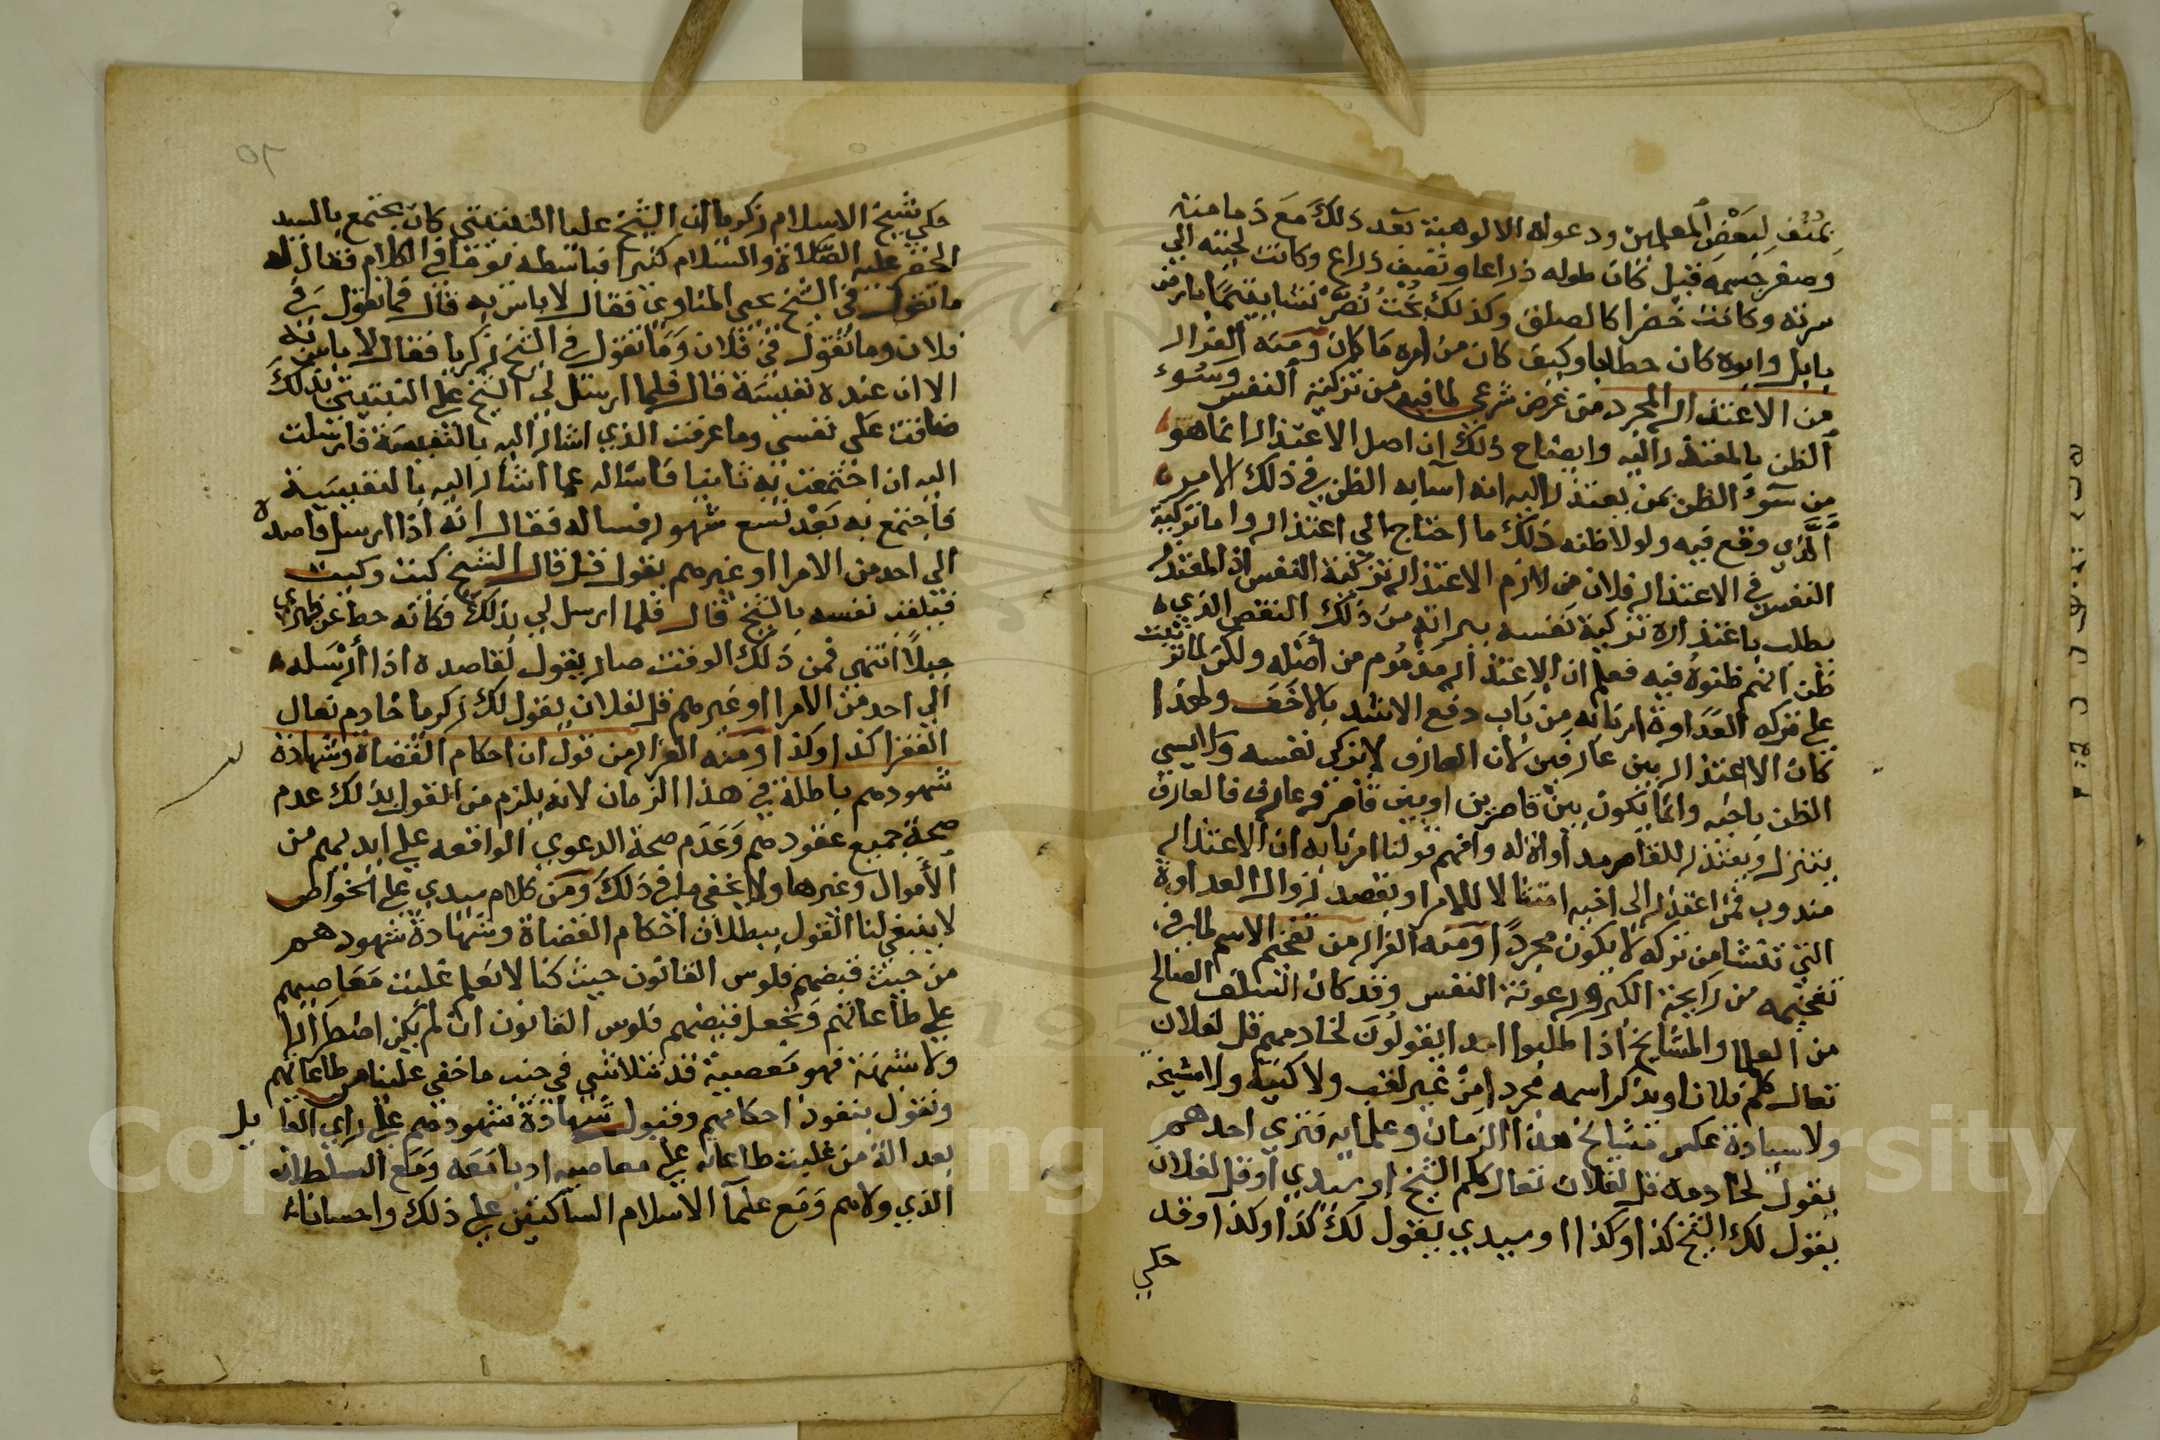 بمثقف لبعض المعلمين ودعواه الالوهية بعد ذلك مع دمامته
وصغر جسمه قيل كان طوله ذراعا ونصف ذراع وكانت لحيته الي
سرته وكانت خضرا كالصلق وكذلك بخت نصر نشا يتيما بارض
بابل وابوه كان حطابا وكيف كان من امره ما كان ومنه الفرار
من الاعتذار المجرد من غرض شرعي لما فيه من تزكية النفس وسوء
الظن بالمعتذر اليه وايضاح ذلك ان اصل الاعتذار انما هو
من سوء الظن بمن يعتذر اليه انه اسا به الظن في ذلك الامر
الذي وقع فيه ولولا ظنه ذلك ما احتاج الى اعتذار واما تزكية
النفس في الاعتذار فلان من لازم الاعتذار تزكية النفس اذ المعتذر
يطلب باعتذاره تزكية نفسه ببراته من ذلك النقص الذي
ظن انهم ظنوه فيه فعلم ان الاعتذار مذموم من أصله ولكن لما ترتبت
علي تركه العداوة امرنا به من باب دفع الاشد بالاخف ولهذا
كان الاعتذار بين عارفين لان العارف لا يزكي نفسه ولا يسيي
الظن باخيه وانما يكون بين قاصرين او بين قاصر وعارف فالعارف
يتنزل ويعتذر للقاصر مداواة له وافهم قولنا امرنا به ان الاعتذار
مندوب فمن اعتذر الى اخيه امتثالا للامر او بقصد زوال العداوة
التي تنشا من تركه لا يكون مجردا ومنه الفرار من تفخيم الاسم لما في
تفخيمه من رايحة الكبر ورعونة النفس وقد كان السلف الصالح
من العلما والمشايخ اذا طلبوا احدا يقولون لخادمهم قل لفلان
تعال كلم فلانا ويذكر اسمه مجردا من غير لقب ولا كنية ولا مشيخة
ولا سيادة عكس مشايخ هذا الزمان وعلمايه فترى احدهم
يقول لخادمه قل لفلان تعال كلم الشيخ او سيدي او قل لفلان
يقول لك الشيخ كذا وكذا او سيدي يقول لك كذا وكذا وقد
حكي
٦٥
حكي شيخ الاسلام زكريا ان الشيخ عليا النبتيتي كان يجتمع بالسيد
الخضر عليه الصلاة والسلام كثيرا فباسطه يوما في الكلام فقال له
ما تقول في الشيخ يحيى المناوي فقال لا باس به قال فما تقول في
فلان وما تقول في فلان وما تقول في الشيخ زكريا فقال لا باس به
الا ان عنده نفيسة قال فلما ارسل لي الشيخ علي النبتيتي بذلك
ضاقت علي نفسي وما عرفت الذي اشار اليه بالنفيسة فارسلت
اليه ان اجتمعت به ثانيا فاساله عما اشار اليه بالنفيسة
فاجتمع به بعد تسع شهور فساله فقال انه اذا ارسل قاصده
الي احد من الامرا او غيرهم يقول قل قال الشيخ كيت وكيت
فيلقب نفسه بالشيخ قال فلما ارسل لي بذلك فكانه حط عن ظهري
جبلا انتهي فمن ذلك الوقت صار يقول لقاصده اذا أرسله
الي احد من الامرا او غيرهم قل لفلان يقول لك زكريا خادم نعال
الفقرا كذا وكذا ومنه الفرار من قول ان احكام القضاة وشهادة
شهودهم باطلة في هذا الزمان لانه يلزم من القول بذلك عدم
صحة جميع عقودهم وعدم صحة الدعوي الواقعه علي ايديهم من
الأموال وغيرها ولا يخفى ما في ذلك ومن كلام سيدي علي الخواص
لا ينبغي لنا القول ببطلان احكام القضاة وشهادة شهودهم
من حيث قبضهم فلوس القانون حيث كنا لا نعلم غلبت معاصيهم
علي طاعاتهم ونجعل قبضهم فلوس القانون ان لم يكن اضطرارا
ولا شبهة فهو معصية قد تتلاشي في جنب ما خفي علينا من طاعاتهم
ونقول بنفوذ احكامهم وقبول شهادة شهودهم علي راي القايل
بعدالة من غلبت طاعاته علي معاصيه ادبا معه ومع السلطان
الذي ولاهم ومع علمآ الاسلام الساكتين علي ذلك واحسانا